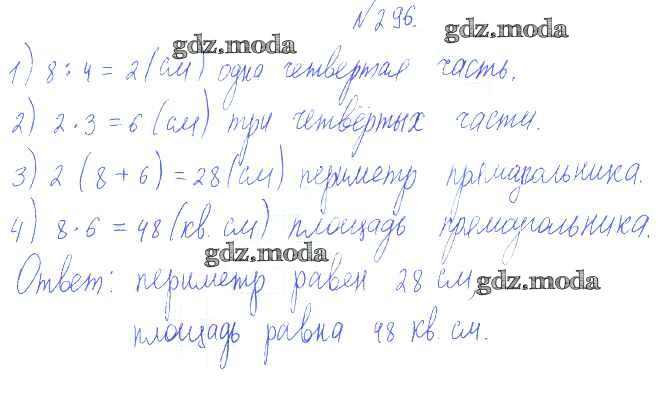 №296.
gdz.moda
1) 8 : 4 = 2 (см) одна четвертая часть.
2) 2 · 3 = 6 (см) три четвёртых части.
3) 2 (8 + 6) = 28 (см) периметр прямоугольника.
4) 8 · 6 = 48 (кв. см) площадь премоугольника.
gdz.moda
Ответ: периметр равен 28 см, gdz.moda
площадь равна 48 кв. см.